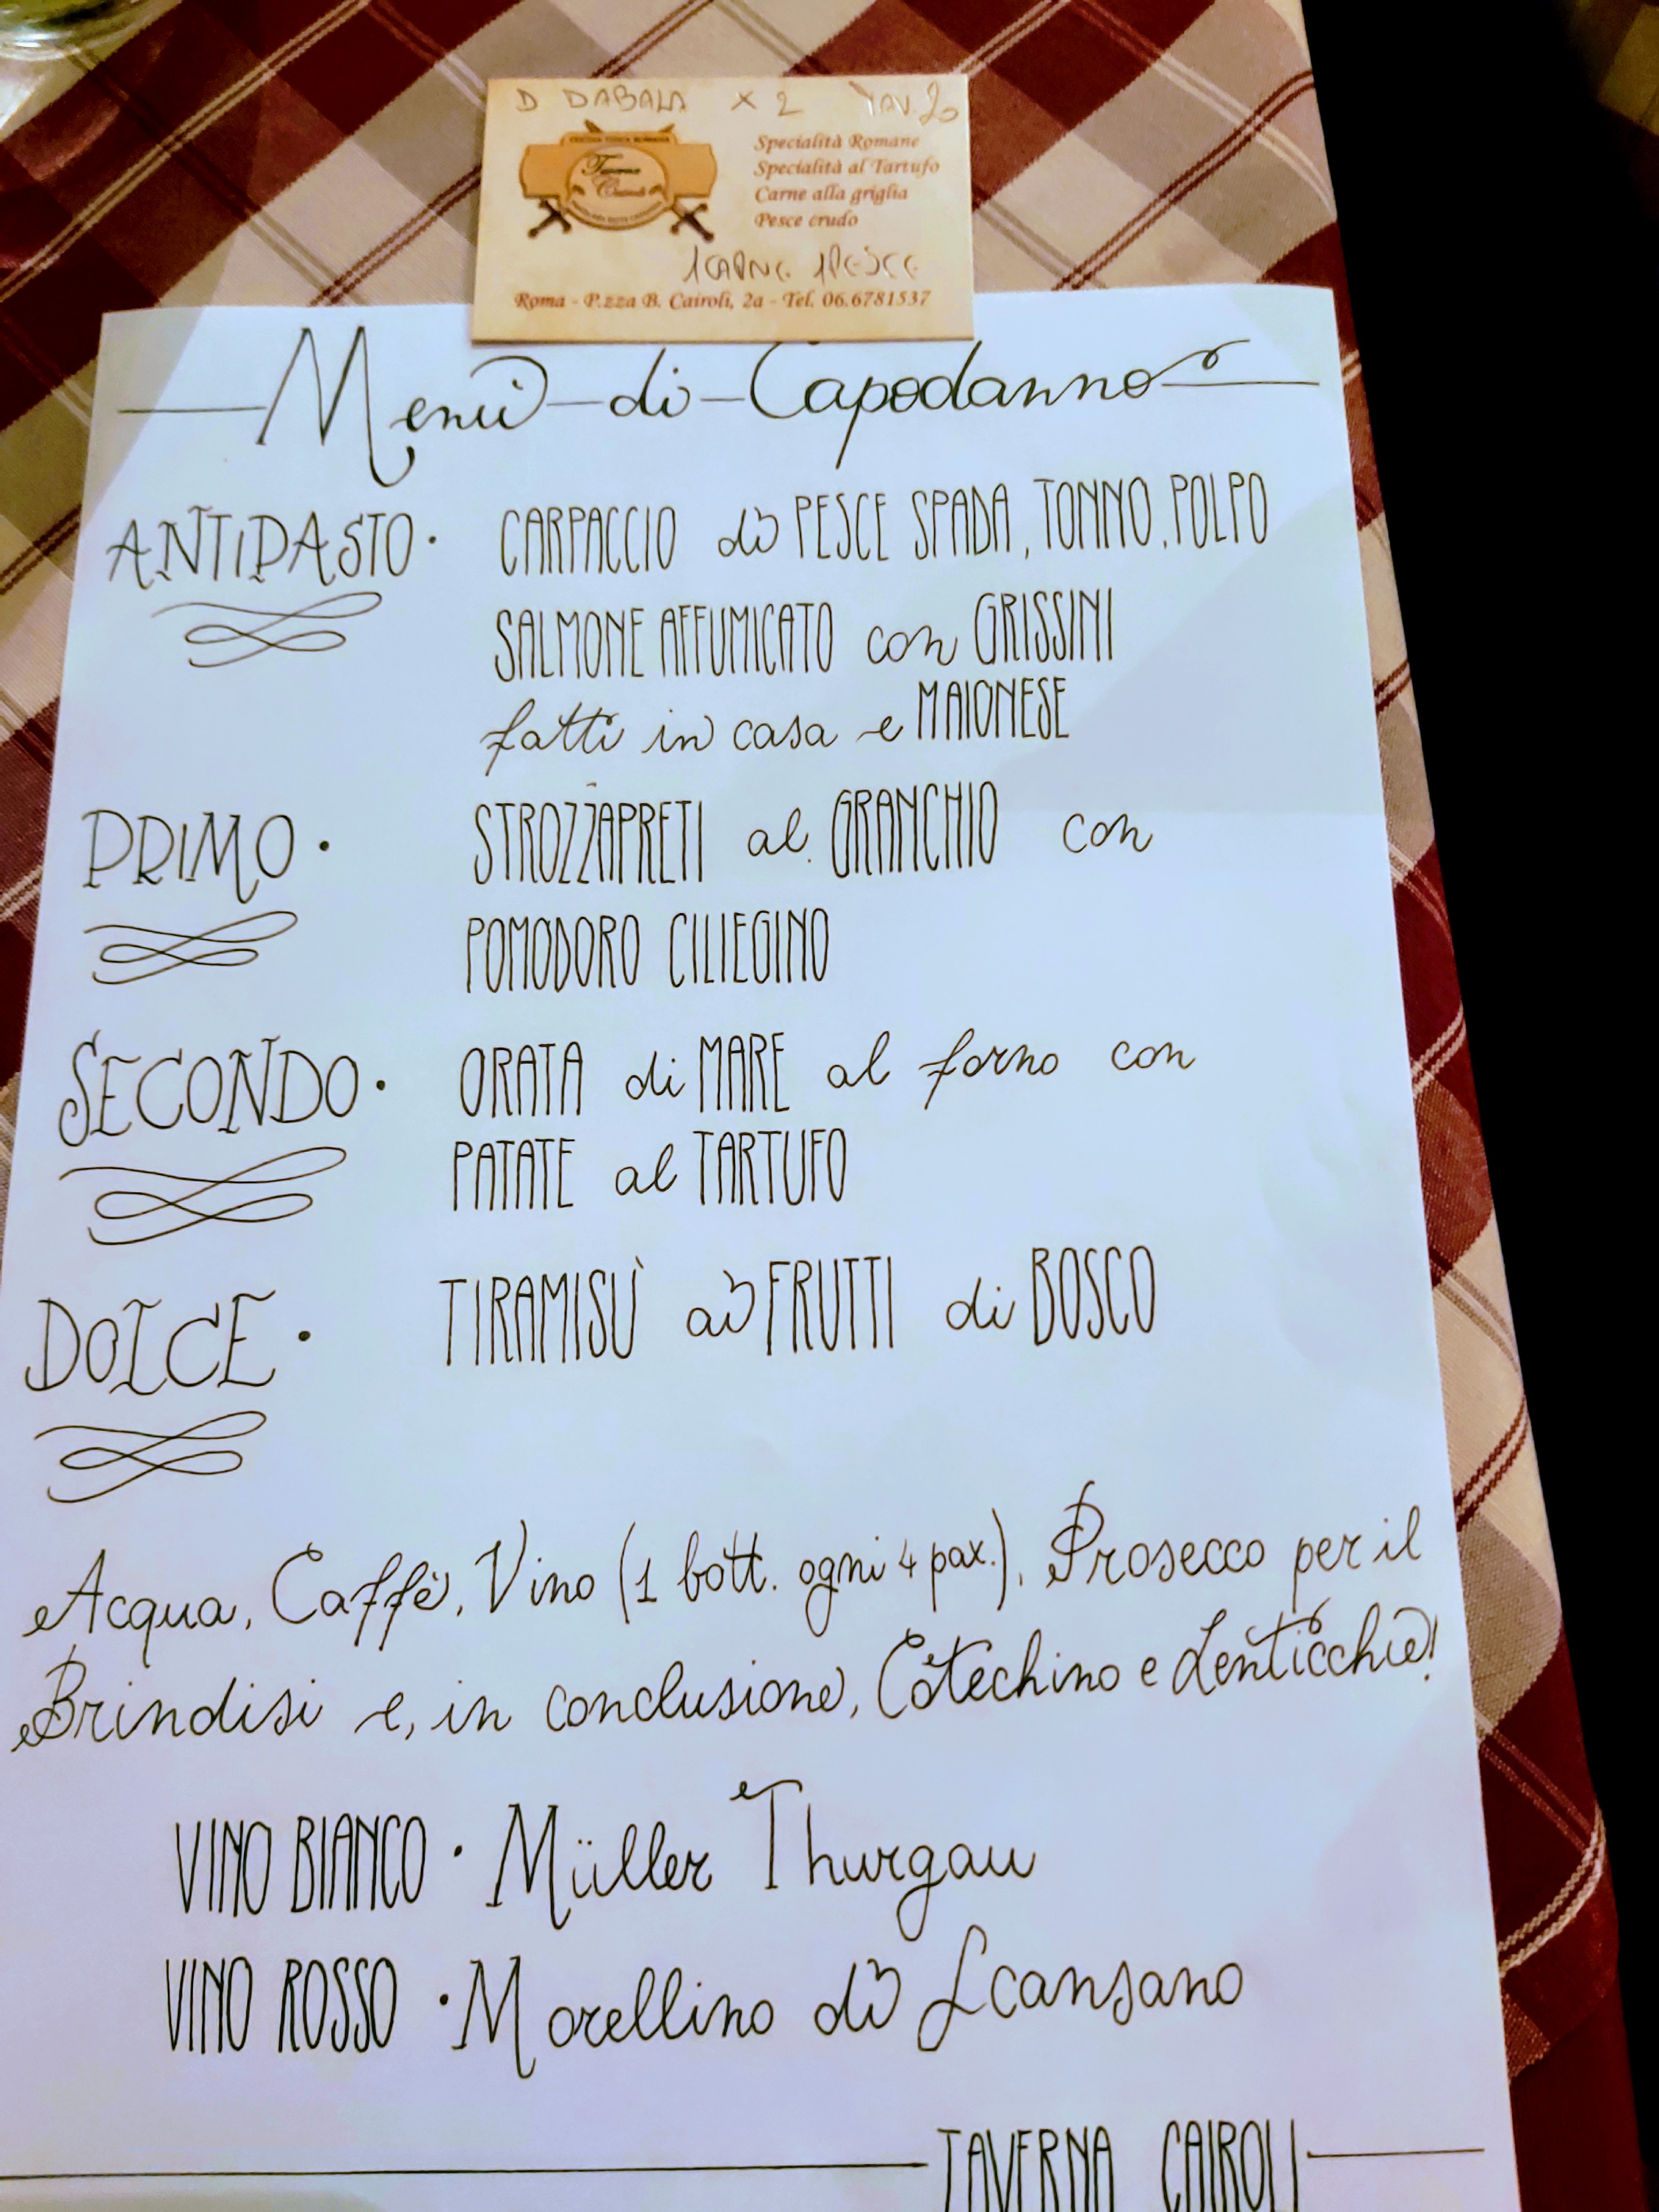 D DABALA x 2 TAV. 20
Taverna
Cairoli
Specialità Romane
Specialità al Tartufo
Carne alla griglia
Pesce crudo
1 CARNE 1 PESCE
Roma - P.zza B. Cairoli, 2a - Tel. 06.6781537
Menù di Capodanno
ANTIPASTO · CARPACCIO di PESCE SPADA, TONNO, POLPO
SALMONE AFFUMICATO con GRISSINI
fatti in casa e MAIONESE
PRIMO · STROZZAPRETI al GRANCHIO con
POMODORO CILIEGINO
SECONDO · ORATA di MARE al forno con
PATATE al TARTUFO
DOLCE · TIRAMISÙ ai FRUTTI di BOSCO
Acqua, Caffè, Vino (1 bott. ogni 4 pax.), Prosecco per il
Brindisi e, in conclusione, Cotechino e Lenticchie!
VINO BIANCO · Müller Thurgau
VINO ROSSO · Morellino di Scansano
TAVERNA CAIROLI